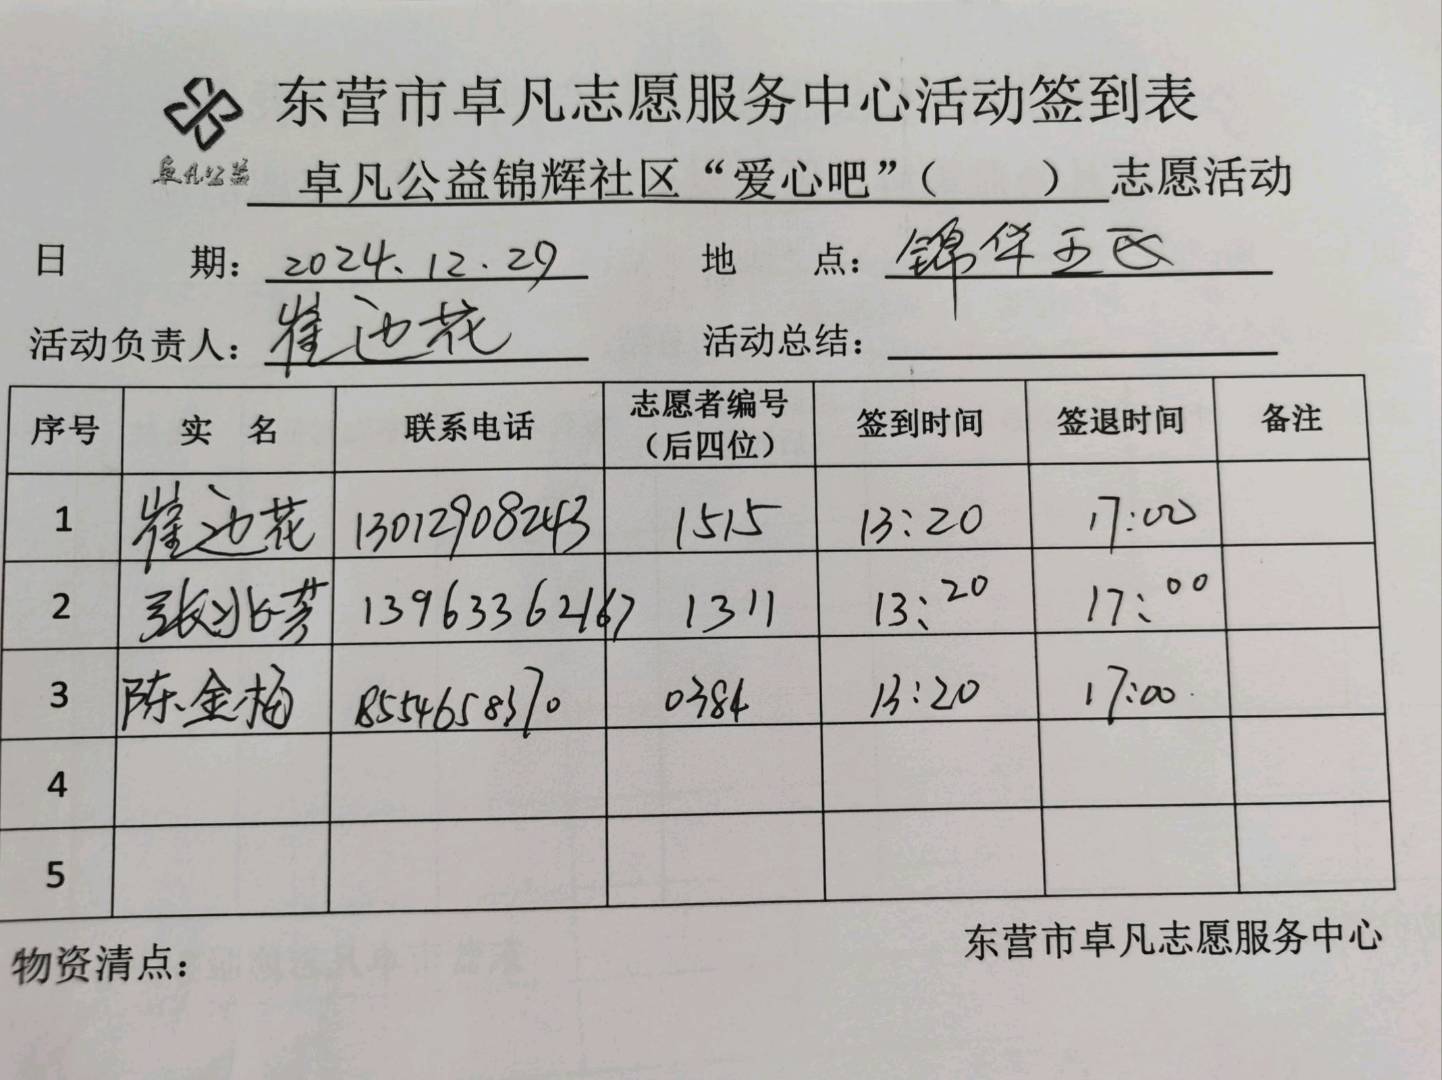 东营市卓凡志愿服务中心活动签到表
卓凡公益
卓凡公益锦辉社区“爱心吧”（ ）志愿活动
日 期：2024.12.29 地 点：锦华五区
活动负责人：崔迎花 活动总结：
序号 实 名 联系电话 志愿者编号（后四位） 签到时间 签退时间 备注
1 崔迎花 13012908243 1515 13:20 17:00
2 张兆芳 13963362167 1311 13:20 17:00
3 陈金梅 18554658370 0384 13:20 17:00
4
5
物资清点： 东营市卓凡志愿服务中心